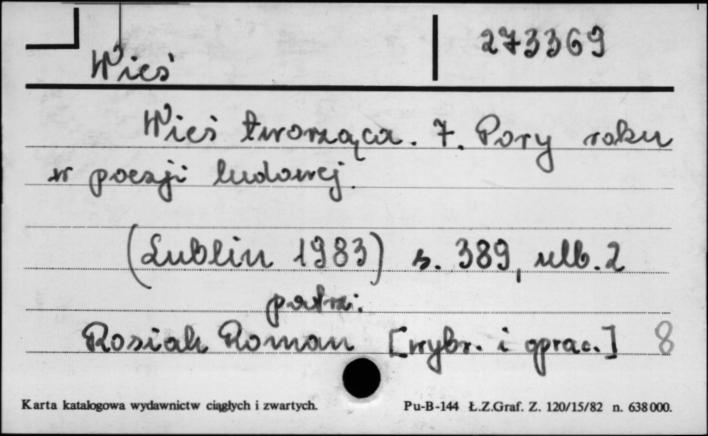 Wieś
273369
Wieś tworząca. 7. Pory roku
w poezji ludowej.
(Lublin 1983) s. 389, nlb. 2
patrz:
Rosiak Roman [wybr. i oprac.] 8
Karta katalogowa wydawnictw ciągłych i zwartych.
Pu-B-144 Ł.Z.Graf. Z. 120/15/82 n. 638000.